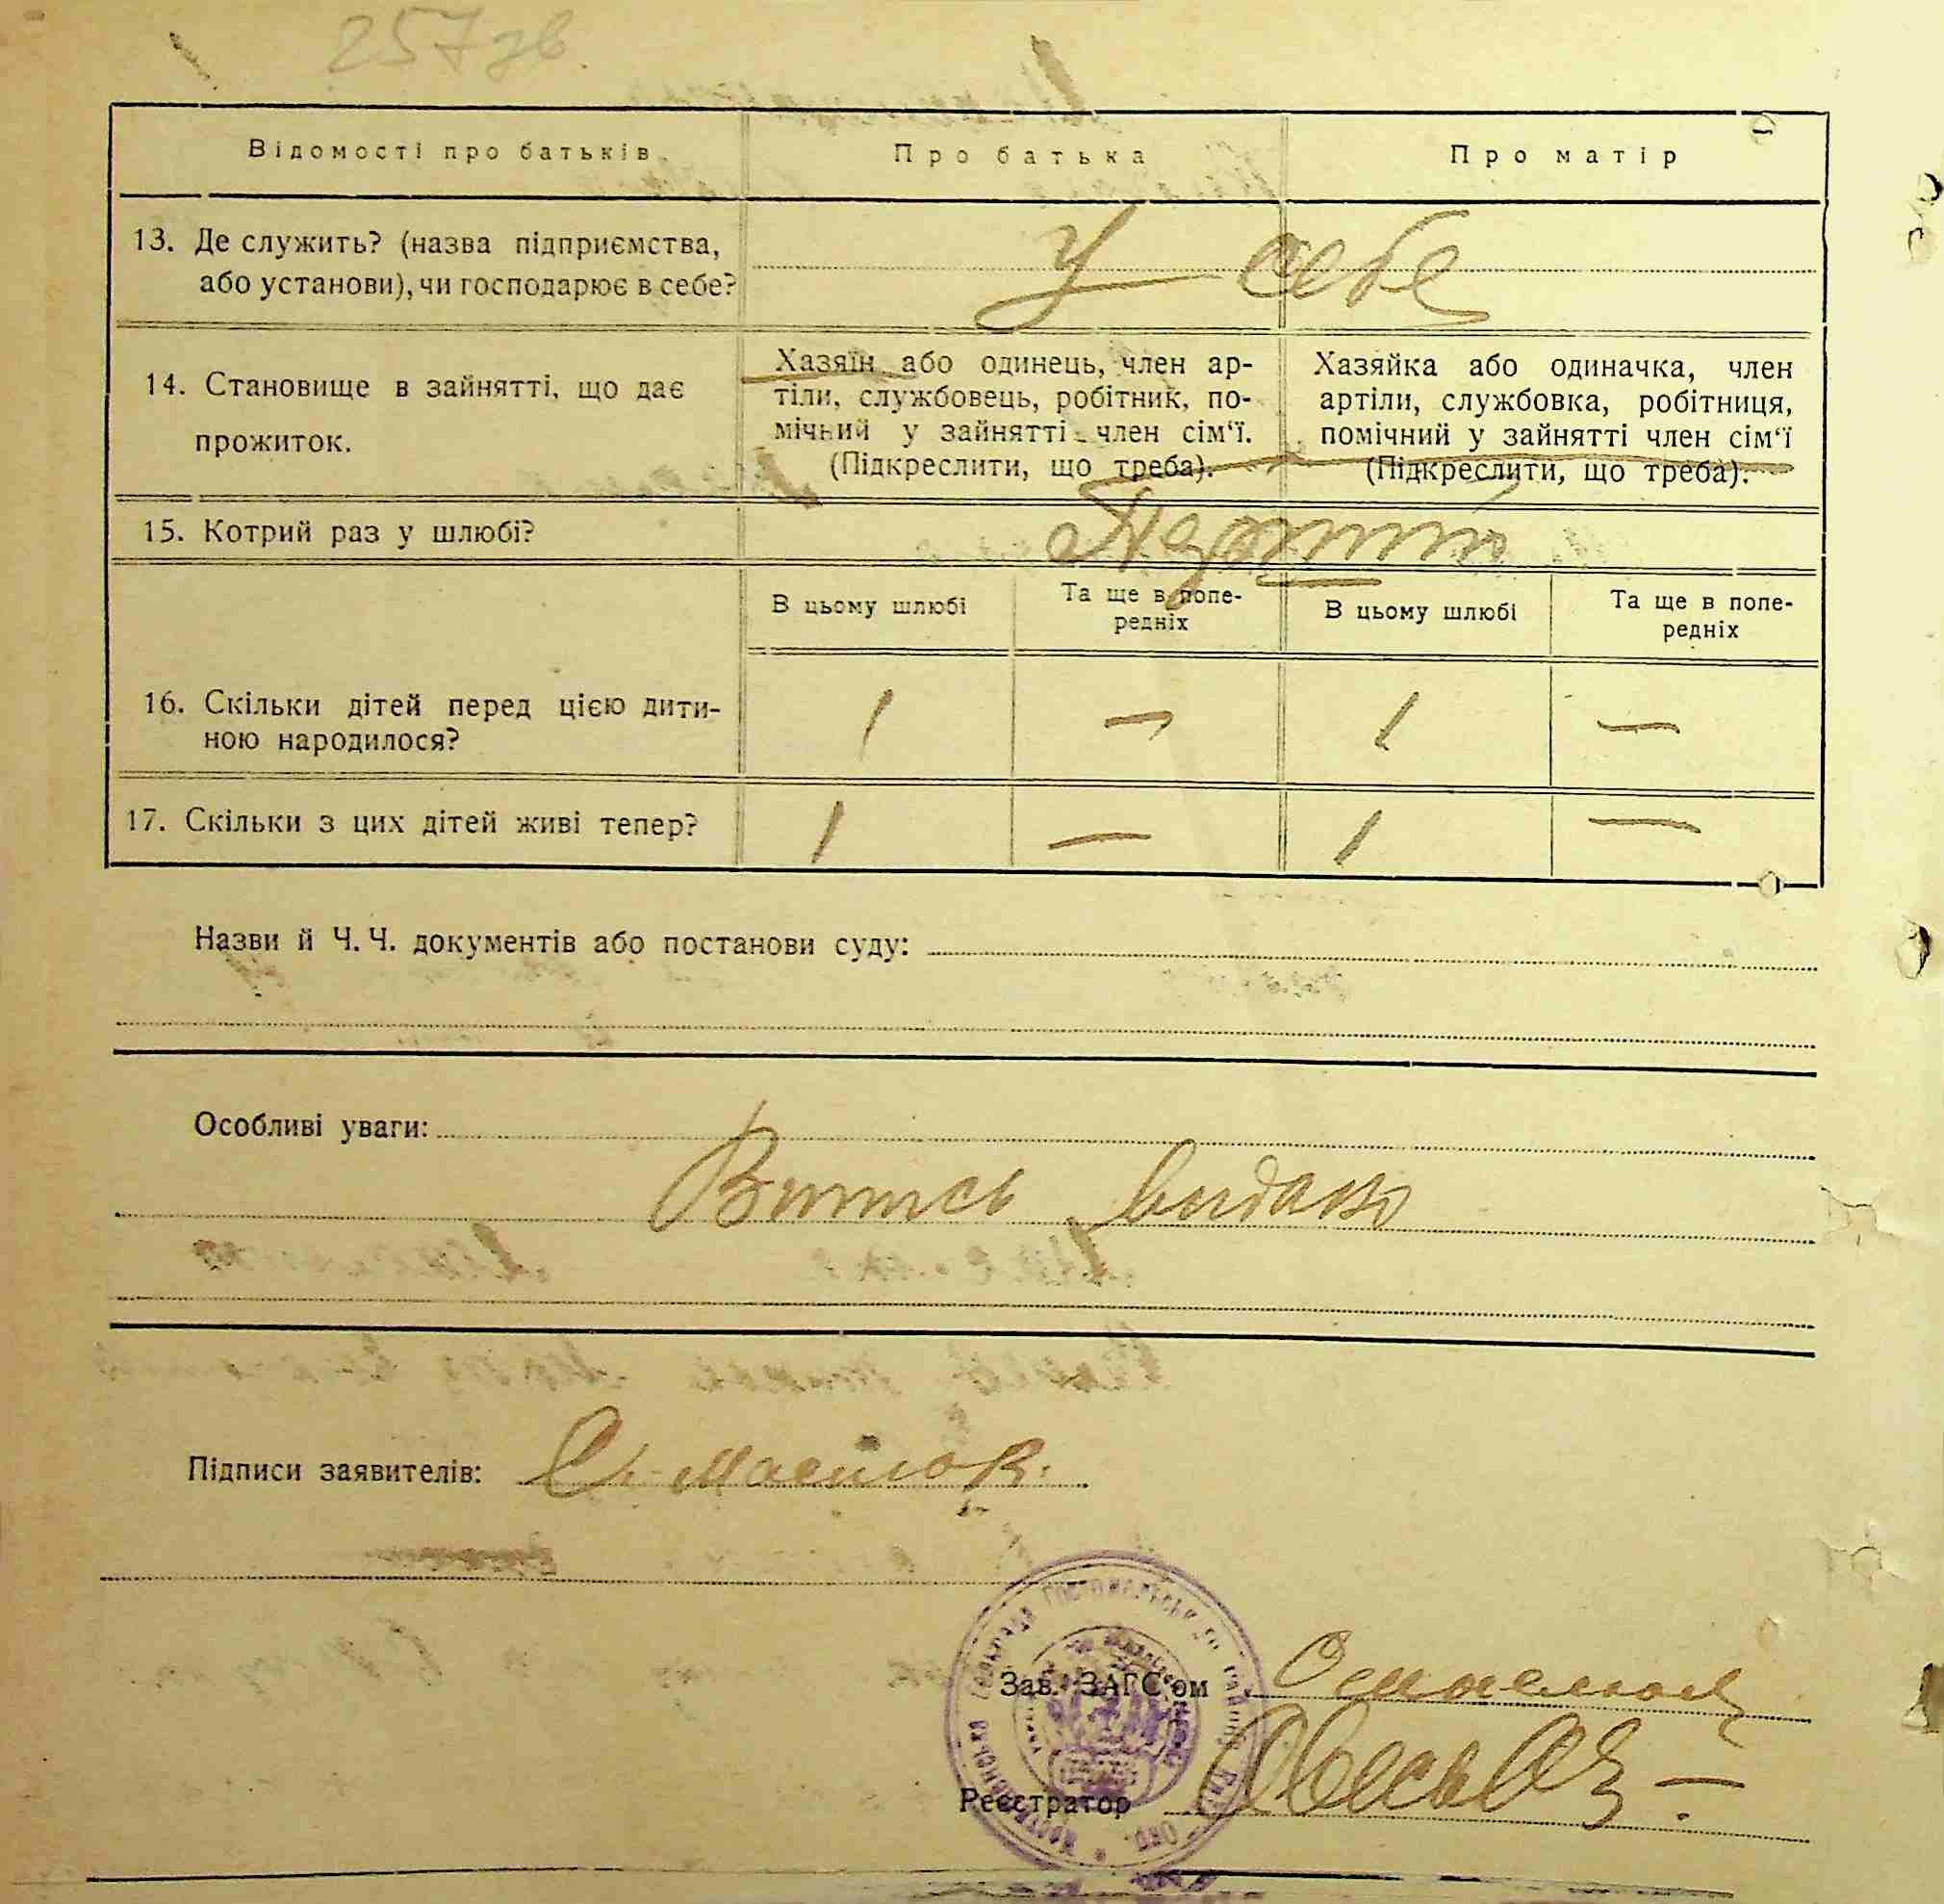 257 зв.
Відомості про батьків.
Про батька
Про матір
13. Де служить? (назва підприємства,
або установи), чи господарює в себе?
У себе
14. Становище в зайнятті, що дає
прожиток.
Хазяїн або одинець, член ар-
тіли, службовець, робітник, по-
мічний у зайнятті член сім‘ї.
(Підкреслити, що треба).
Хазяйка або одиначка, член
артіли, службовка, робітниця,
помічний у зайнятті член сім‘ї
(Підкреслити, що треба).
15. Котрий раз у шлюбі?
В цьому шлюбі
Та ще в попе-
редніх
В цьому шлюбі
Та ще в попе-
редніх
16. Скільки дітей перед цією дити-
ною народилося?
1 — 1 —
17. Скільки з цих дітей живі тепер?
1 — 1 —
Назви й Ч. Ч. документів або постанови суду:
Особливі уваги:
Витись видано
Підписи заявителів:
Зав. ЗАГС‘ом
Реєстратор